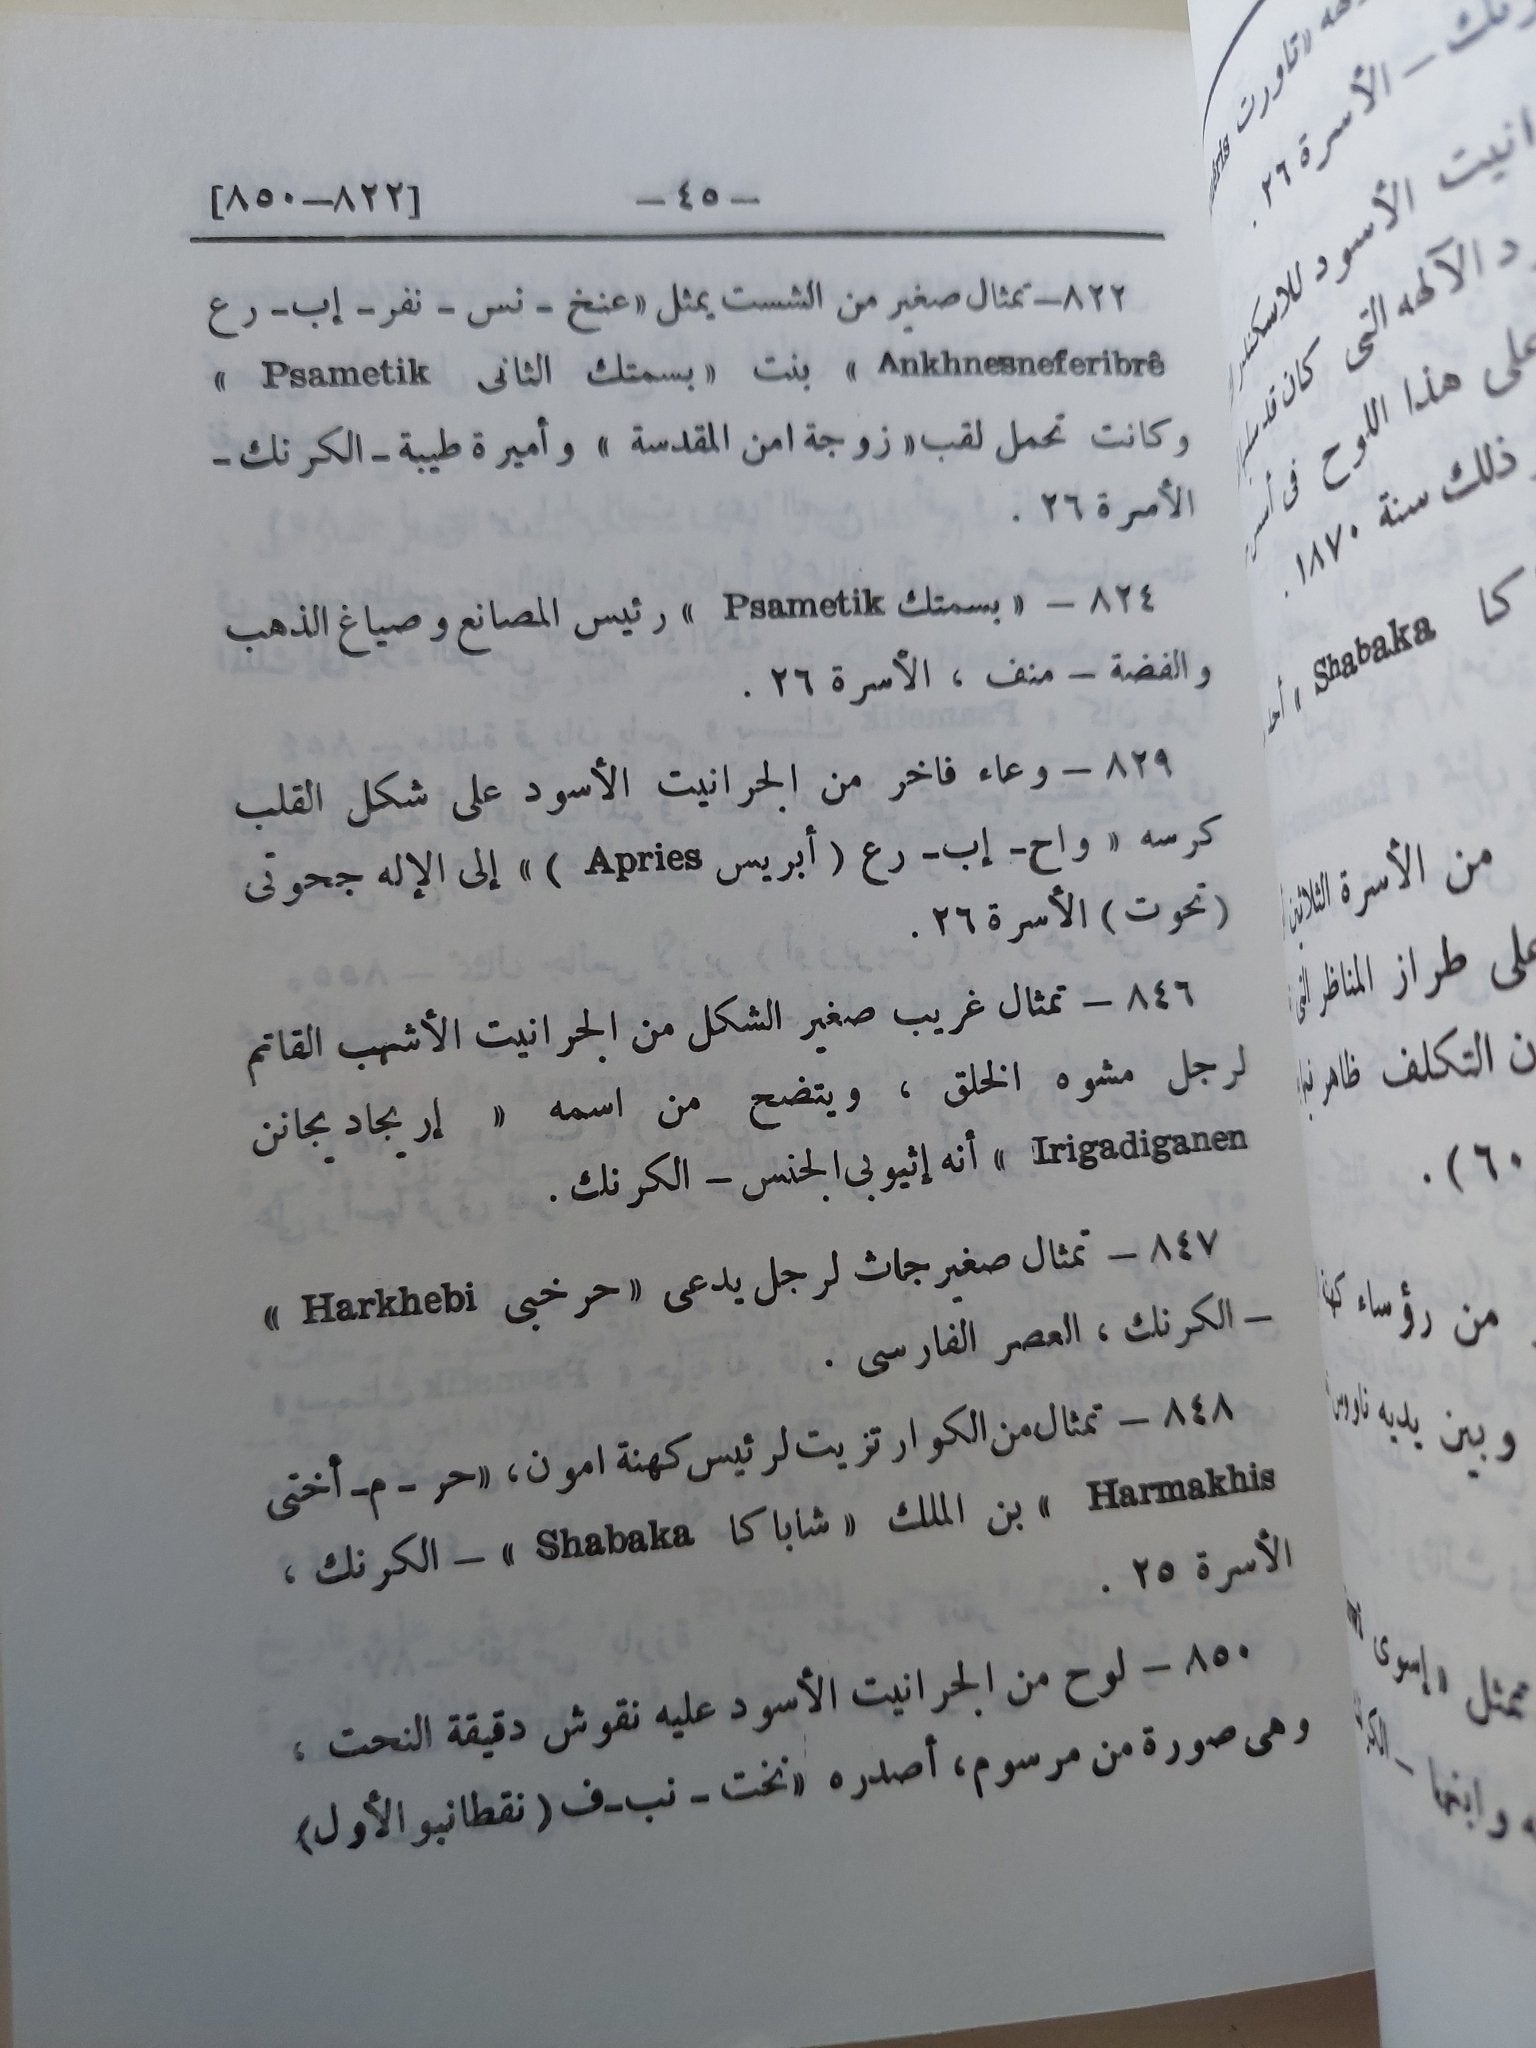 [٨٢٢—٨٥٠]
— ٤٥ —
٨٢٢— تمثال صغير من الشست يمثل «عنخ - نس - نفر - إب - رع
Ankhnesneferibrê » بنت « بسمتك الثانى Psametik »
وكانت تحمل لقب « زوجة امن المقدسة » وأميرة طيبة - الكرنك -
الأسرة ٢٦ .
٨٢٤ — « بسمتك Psametik » رئيس المصانع وصياغ الذهب
والفضة — منف ، الأسرة ٢٦ .
٨٢٩ — وعاء فاخر من الجرانيت الأسود على شكل القلب
كرسه « واح - إب - رع ( أبريس Apries ) » إلى الإله جحوتى
(تحوت) الأسرة ٢٦ .
٨٤٦ — تمثال غريب صغير الشكل من الجرانيت الأشهب القاتم
لرجل مشوه الخلق ، ويتضح من اسمه « إريجاديجانن
Irigadiganen » أنه إثيوبى الجنس — الكرنك .
٨٤٧ — تمثال صغير جاث لرجل يدعى « حرخبى Harkhebi »
— الكرنك ، العصر الفارسى .
٨٤٨ — تمثال من الكوارتزيت لرئيس كهنة امون ، « حر - م - أختى
Harmakhis » بن الملك « شاباكا Shabaka » — الكرنك ،
الأسرة ٢٥ .
٨٥٠ — لوح من الجرانيت الأسود عليه نقوش دقيقة النحت ،
وهى صورة من مرسوم ، أصدره « نخت - نب - ف ( نقطانبو الأول )
«تاورت
نك — الأسرة ٢٦ .
الأسود
الآلهه التى كان
على هذا اللوح فى
ذلك سنة ١٨٧٠ .
كا Shabaka »
من الأسرة الثلاثين
على طراز المناظر التى
التكلف ظاهر
٦٠ ) .
من رؤساء
وبين يديه ناووس
تمثل « إسوى
وابنها —